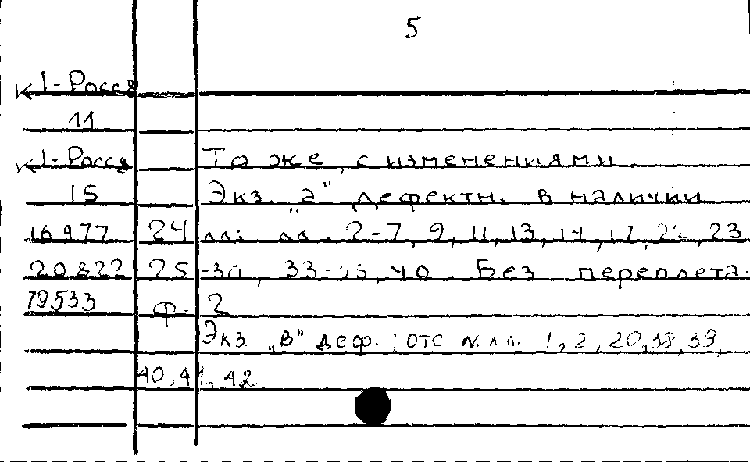 5
К1-Росся
11
К1-Росся То же, с изменениями.
15 Экз. "а" дефектн. в наличии
16977 24 лл: лл. 2-7, 9, 11, 13, 14, 17, 23
20822 25 33- 40 Без переплета.
79533 ф. 2
Экз "В" деф.: отс лл. 1, 2, 20, 38, 39,
40, 41, 42.